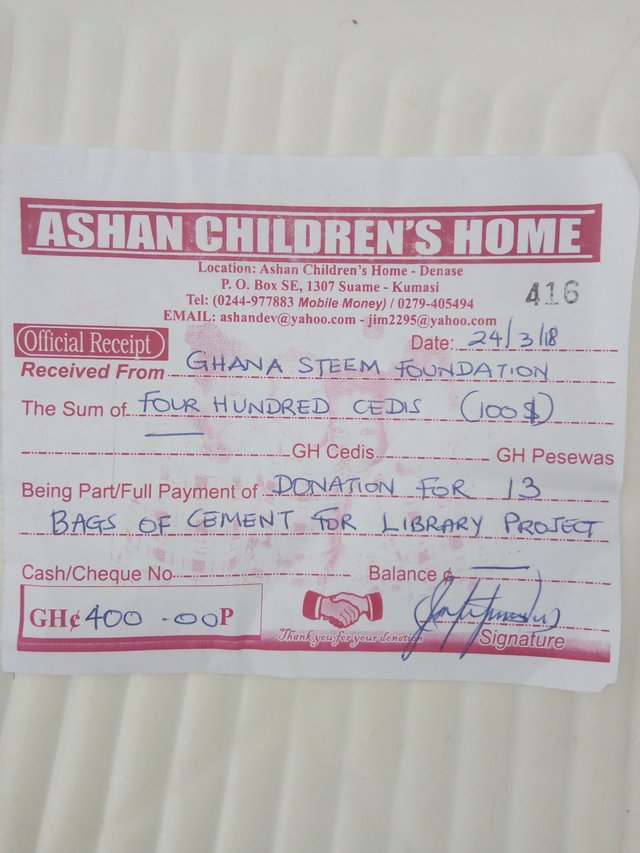 ASHAN CHILDREN'S HOME
Location: Ashan Children's Home - Denase
P. O. Box SE, 1307 Suame - Kumasi
Tel: (0244-977883 Mobile Money) / 0279-405494
EMAIL: ashandev@yahoo.com - jim2295@yahoo.com
416
Official Receipt
Date: 24/3/18
Received From GHANA STEEM FOUNDATION
The Sum of FOUR HUNDRED CEDIS (100$)
GH Cedis GH Pesewas
Being Part/Full Payment of DONATION FOR 13
BAGS OF CEMENT FOR LIBRARY PROJECT
Cash/Cheque No Balance ¢
GH¢ 400 .00P
Thank you for your donation
Signature